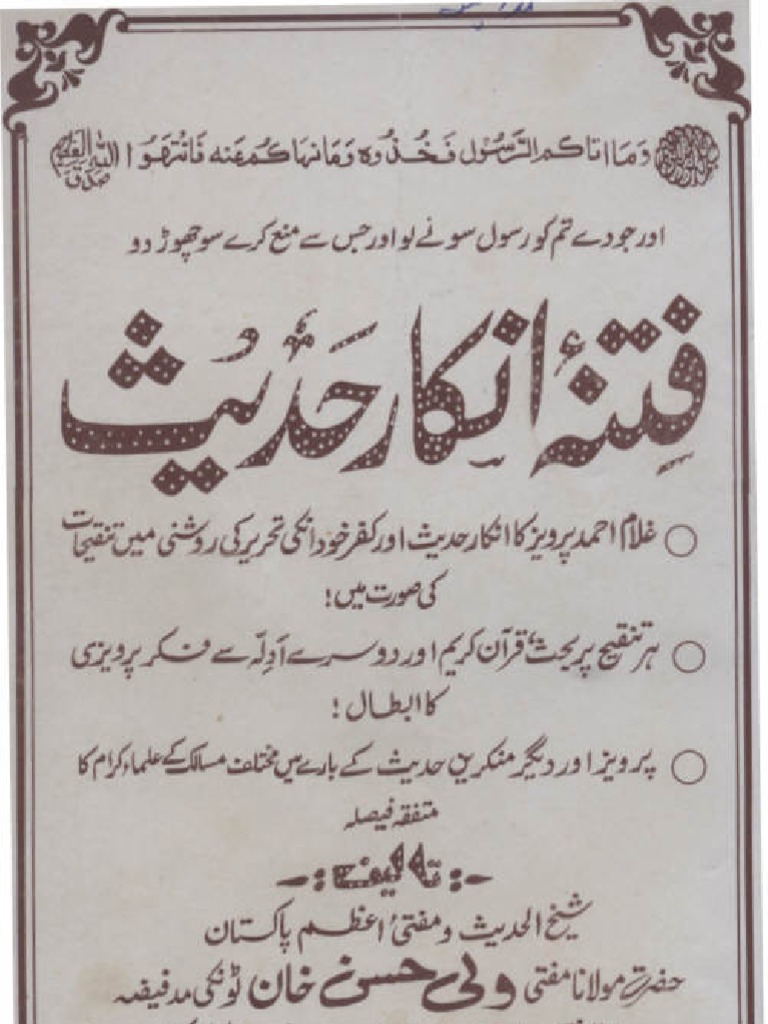 وَمَا اتاكم الرَّسُول فَخُذُوه وَمَا نهاكم عنه فَانتَهُوا صدق الله العظيم
اور جو دے تم کو رسول سو لے لو اور جس سے منع کرے سو چھوڑ دو
فِتنۂ انکارِ حَدیث
غلام احمد پرویز کا انکار حدیث اور کفر خود انکی تحریر کی روشنی میں تنقیحات
کی صورت میں!
ہر تنقیح پر بحث، قرآن کریم اور دوسرے اَدِلّہ سے فکر پرویزی
کا ابطال!
پرویز اور دیگر منکرین حدیث کے بارے میں مختلف مسالک کے علماء کرام کا
متفقہ فیصلہ
-:تالیف:-
شیخ الحدیث و مفتیٔ اعظم پاکستان
حضرت مولانا مفتی ولی حسن خان ٹونکی مدفیضہ